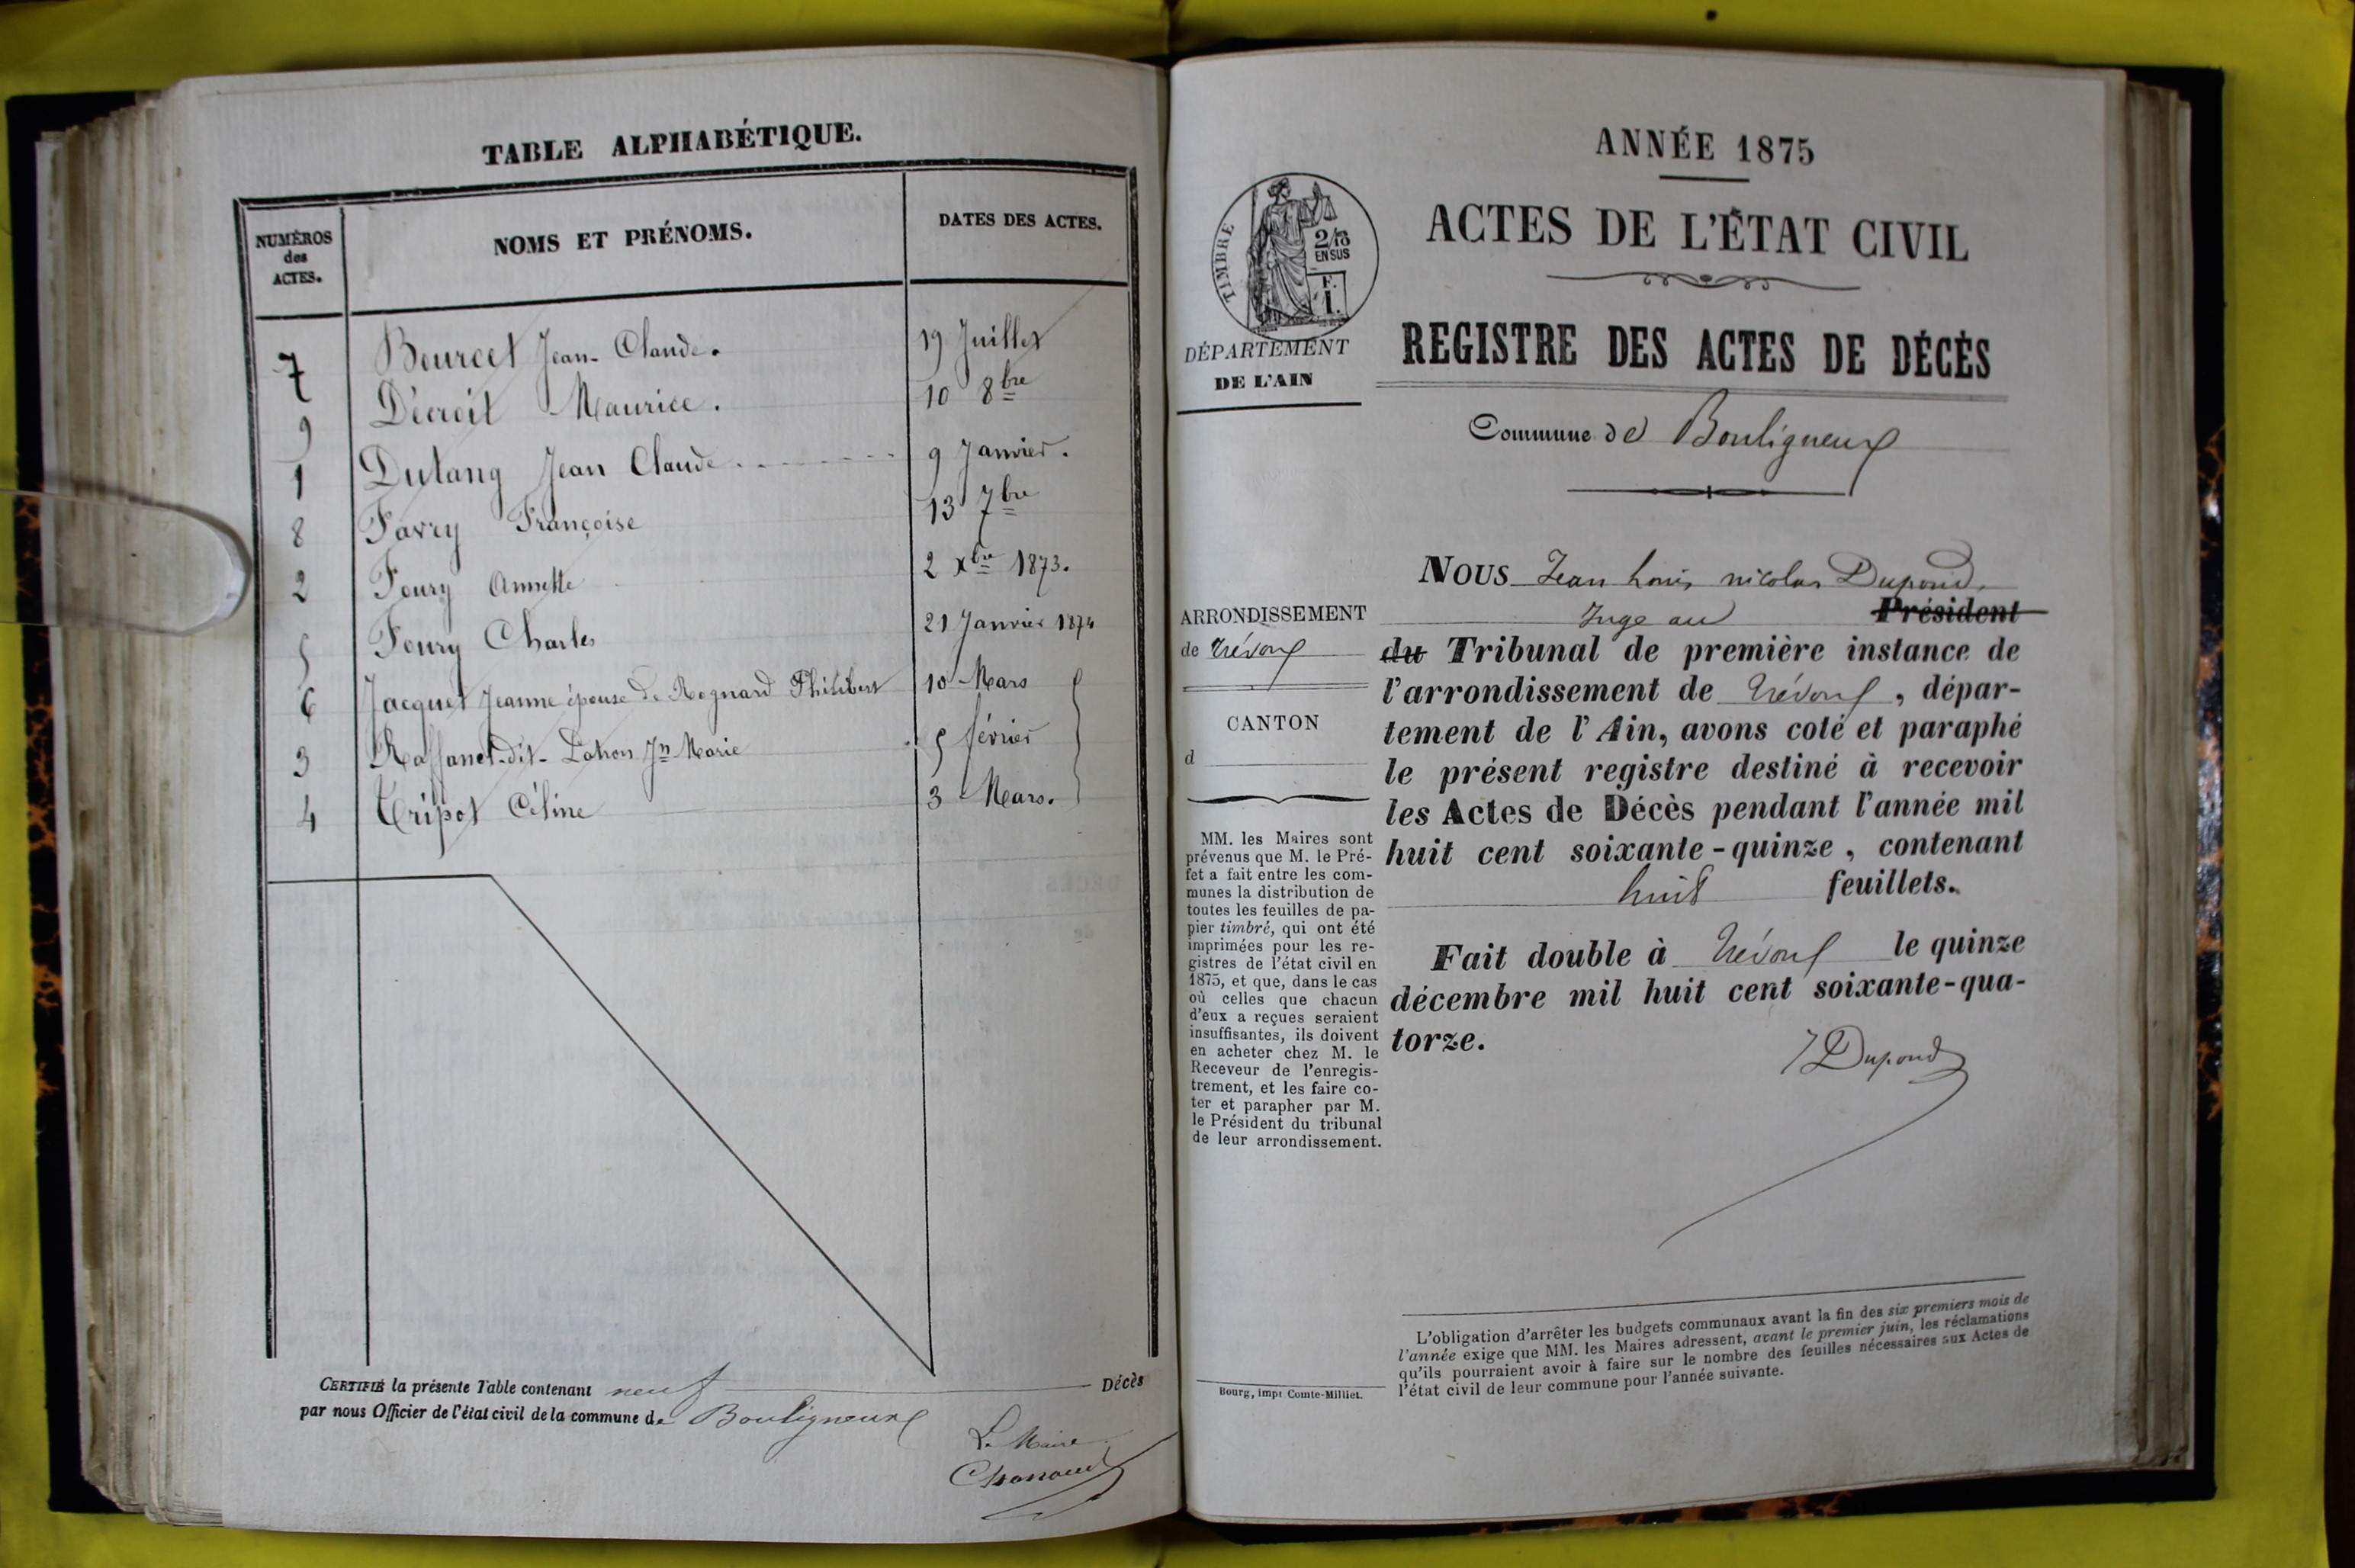 TABLE ALPHABÉTIQUE.
NUMÉROS des ACTES.
NOMS ET PRÉNOMS.
DATES DES ACTES.
7 Bourcet Jean-Claude. 19 Juillet
9 Décroit Maurice. 10 8bre
1 Dutang Jean Claude 9 Janvier.
8 Favry Françoise 13 7bre
2 Foury Annette 2 xbre 1873.
5 Foury Charles 21 Janvier 1874
6 Jacquet Jeanne épouse de Rognard Philibert 10 Mars
3 Raffanel-dit-Lahon Jn Marie 5 février
4 Tripot Céline 3 Mars.
CERTIFIÉ la présente Table contenant neuf Décès
par nous Officier de l'état civil de la commune de Bouligneux
Le Maire
ANNÉE 1875
ACTES DE L'ÉTAT CIVIL
TIMBRE
2/10
EN SUS
F.
1.
DÉPARTEMENT
DE L'AIN
REGISTRE DES ACTES DE DÉCÈS
Commune de Bouligneux
NOUS Jean Louis nicolas Dupond,
Juge au Président
du Tribunal de première instance de
l'arrondissement de Trévoux, dépar-
tement de l'Ain, avons coté et paraphé
le présent registre destiné à recevoir
les Actes de Décès pendant l'année mil
huit cent soixante-quinze, contenant
huit feuillets.
Fait double à Trévoux le quinze
décembre mil huit cent soixante-qua-
torze.
J Dupond
ARRONDISSEMENT
de Trévoux
CANTON
d
MM. les Maires sont
prévenus que M. le Pré-
fet a fait entre les com-
munes la distribution de
toutes les feuilles de pa-
pier timbré, qui ont été
imprimées pour les re-
gistres de l'état civil en
1875, et que, dans le cas
où celles que chacun
d'eux a reçues seraient
insuffisantes, ils doivent
en acheter chez M. le
Receveur de l'enregis-
trement, et les faire co-
ter et parapher par M.
le Président du tribunal
de leur arrondissement.
Bourg, impr Comte-Milliet.
L'obligation d'arrêter les budgets communaux avant la fin des six premiers mois de
l'année exige que MM. les Maires adressent, avant le premier juin, les réclamations
qu'ils pourraient avoir à faire sur le nombre des feuilles nécessaires aux Actes de
l'état civil de leur commune pour l'année suivante.